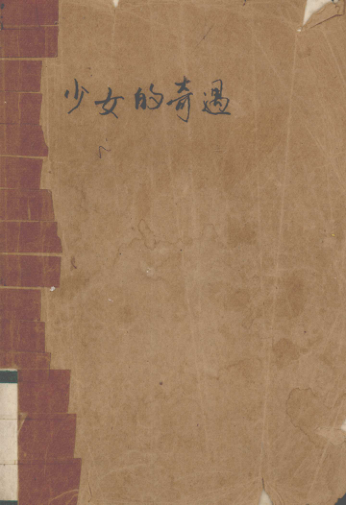 少女的奇遇